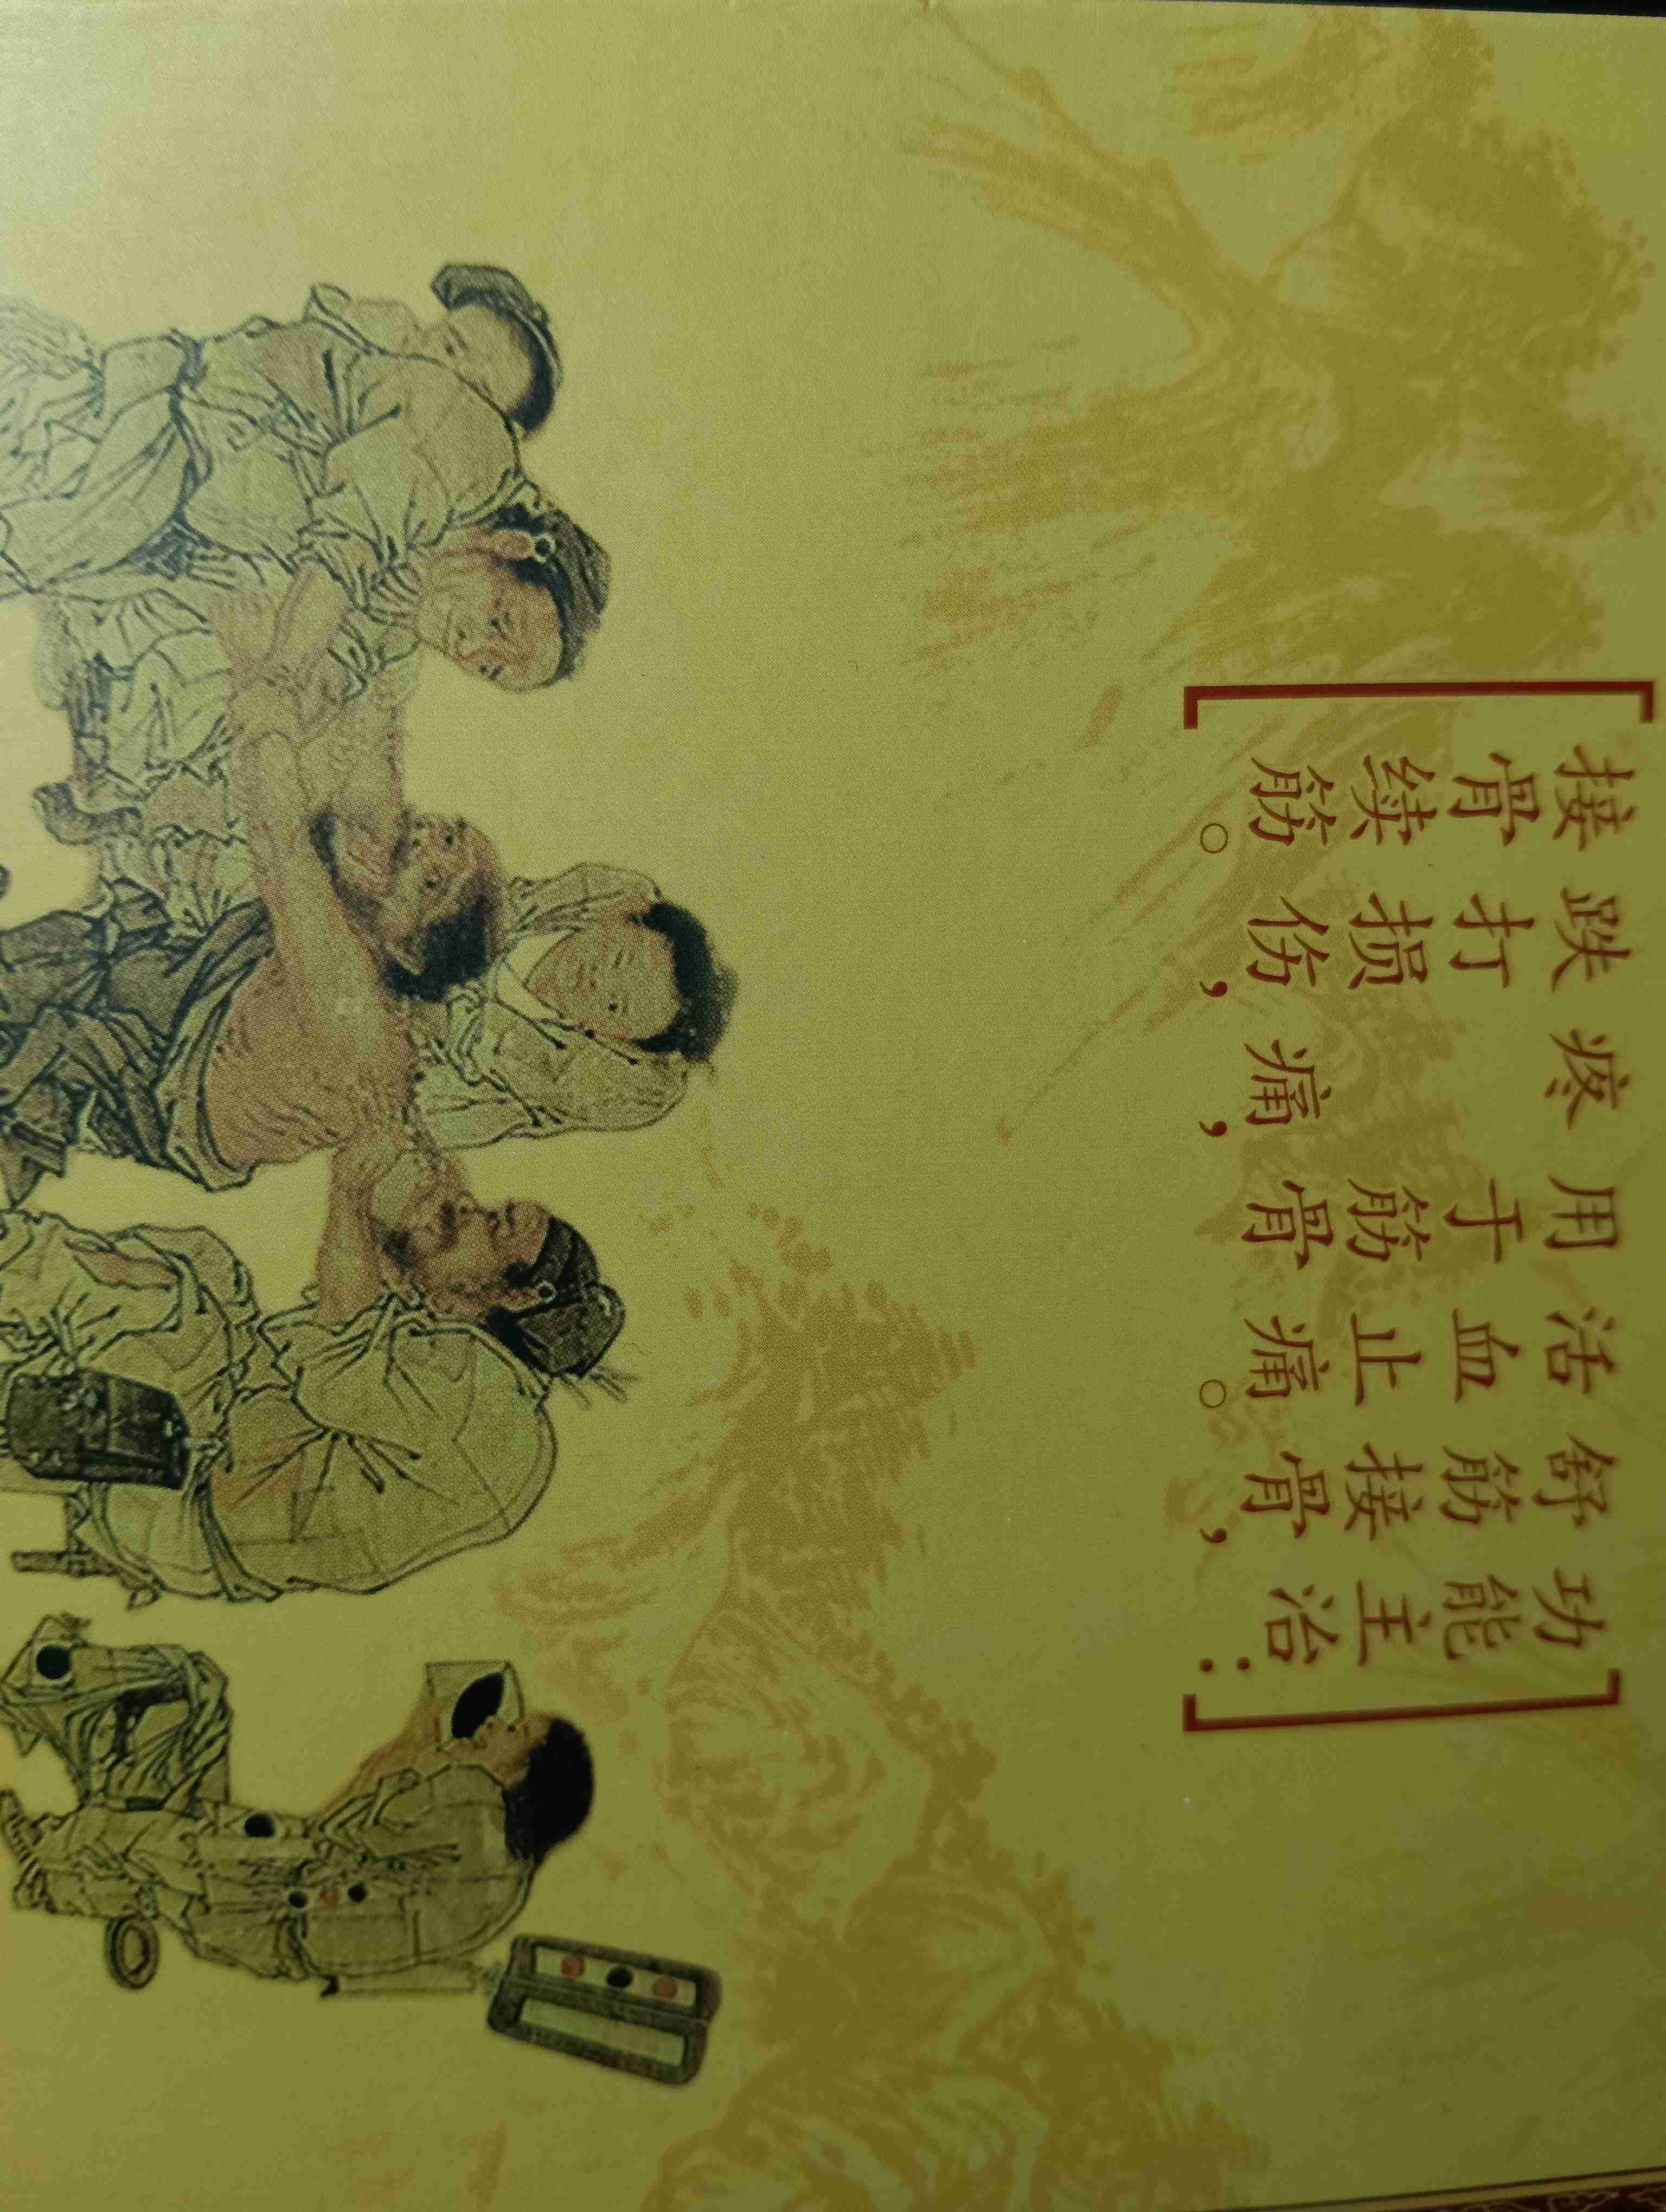 功能主治：
舒筋接骨，
活血止痛。
用于筋骨
疼痛，
跌打损伤，
接骨续筋。